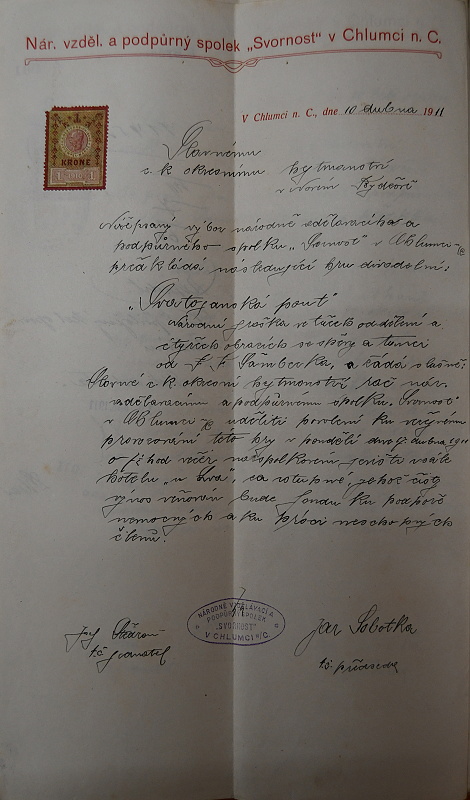 Nár. vzděl. a podpůrný spolek „Svornost" v Chlumci n. C.
V Chlumci n. C., dne 10 dubna 1911
1 KRONE 1
1910
Slavnému
c. k. okresnímu hejtmanství
v Novém Bydžově
výbor národně vzdělavacího a
podpůrného spolku „Svornost" v Chlumci n/C
předkládá následující hru divadelní:
„Svatojanská pouť"
Národní fraška ve třech odděleních a
čtyřech obrazech se zpěvy a tanci
od F. F. Šamberka, a žádá slušně:
Slavné c. k. okresní hejtmanství račiž nár.
vzdělavacímu a podpůrnému spolku „Svornost"
v Chlumci n/C uděliti povolení ku veřejnému
provozování této hry v pondělí dne dubna 1911
o hod. večer na spolkovém jevišti v sále
hotelu „u Lva", za vstupné, jehož čistý
výnos věnován bude fondu ku podpoře
nemocných a ku práci neschopných
členů.
NÁRODNĚ VZDĚLÁVACÍ A
PODPŮRNÝ SPOLEK
„SVORNOST"
V CHLUMCI n/C.
Jos.
t. č. jednatel
Jar Sobotka
t. č. předseda